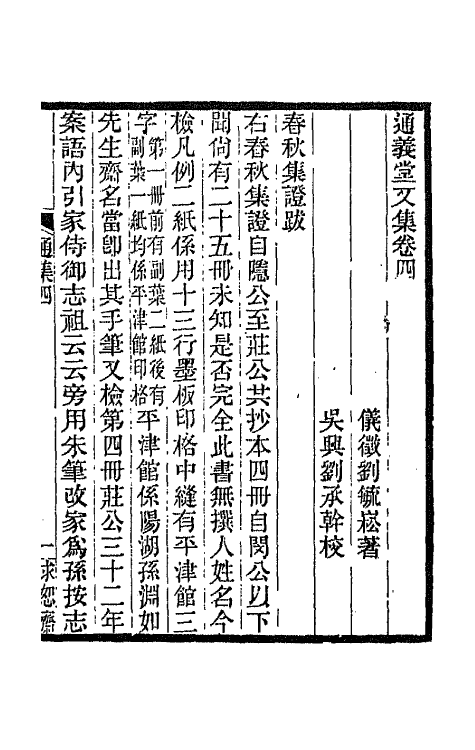 通義堂文集卷四
儀徵劉毓崧著
吳興劉承幹校
春秋集證跋
右春秋集證自隱公至莊公共抄本四冊自閔公以下
聞尙有二十五冊未知是否完全此書無撰人姓名今
檢凡例二紙係用十三行墨板印格中縫有平津館三
字第一冊前有副葉二紙後有副葉一紙均係平津館印格平津館係陽湖孫淵如
先生齋名當卽出其手筆又檢第四冊莊公三十二年
案語內引家侍御志祖云云旁用朱筆改家爲孫按志
通集四
一
求恕齋